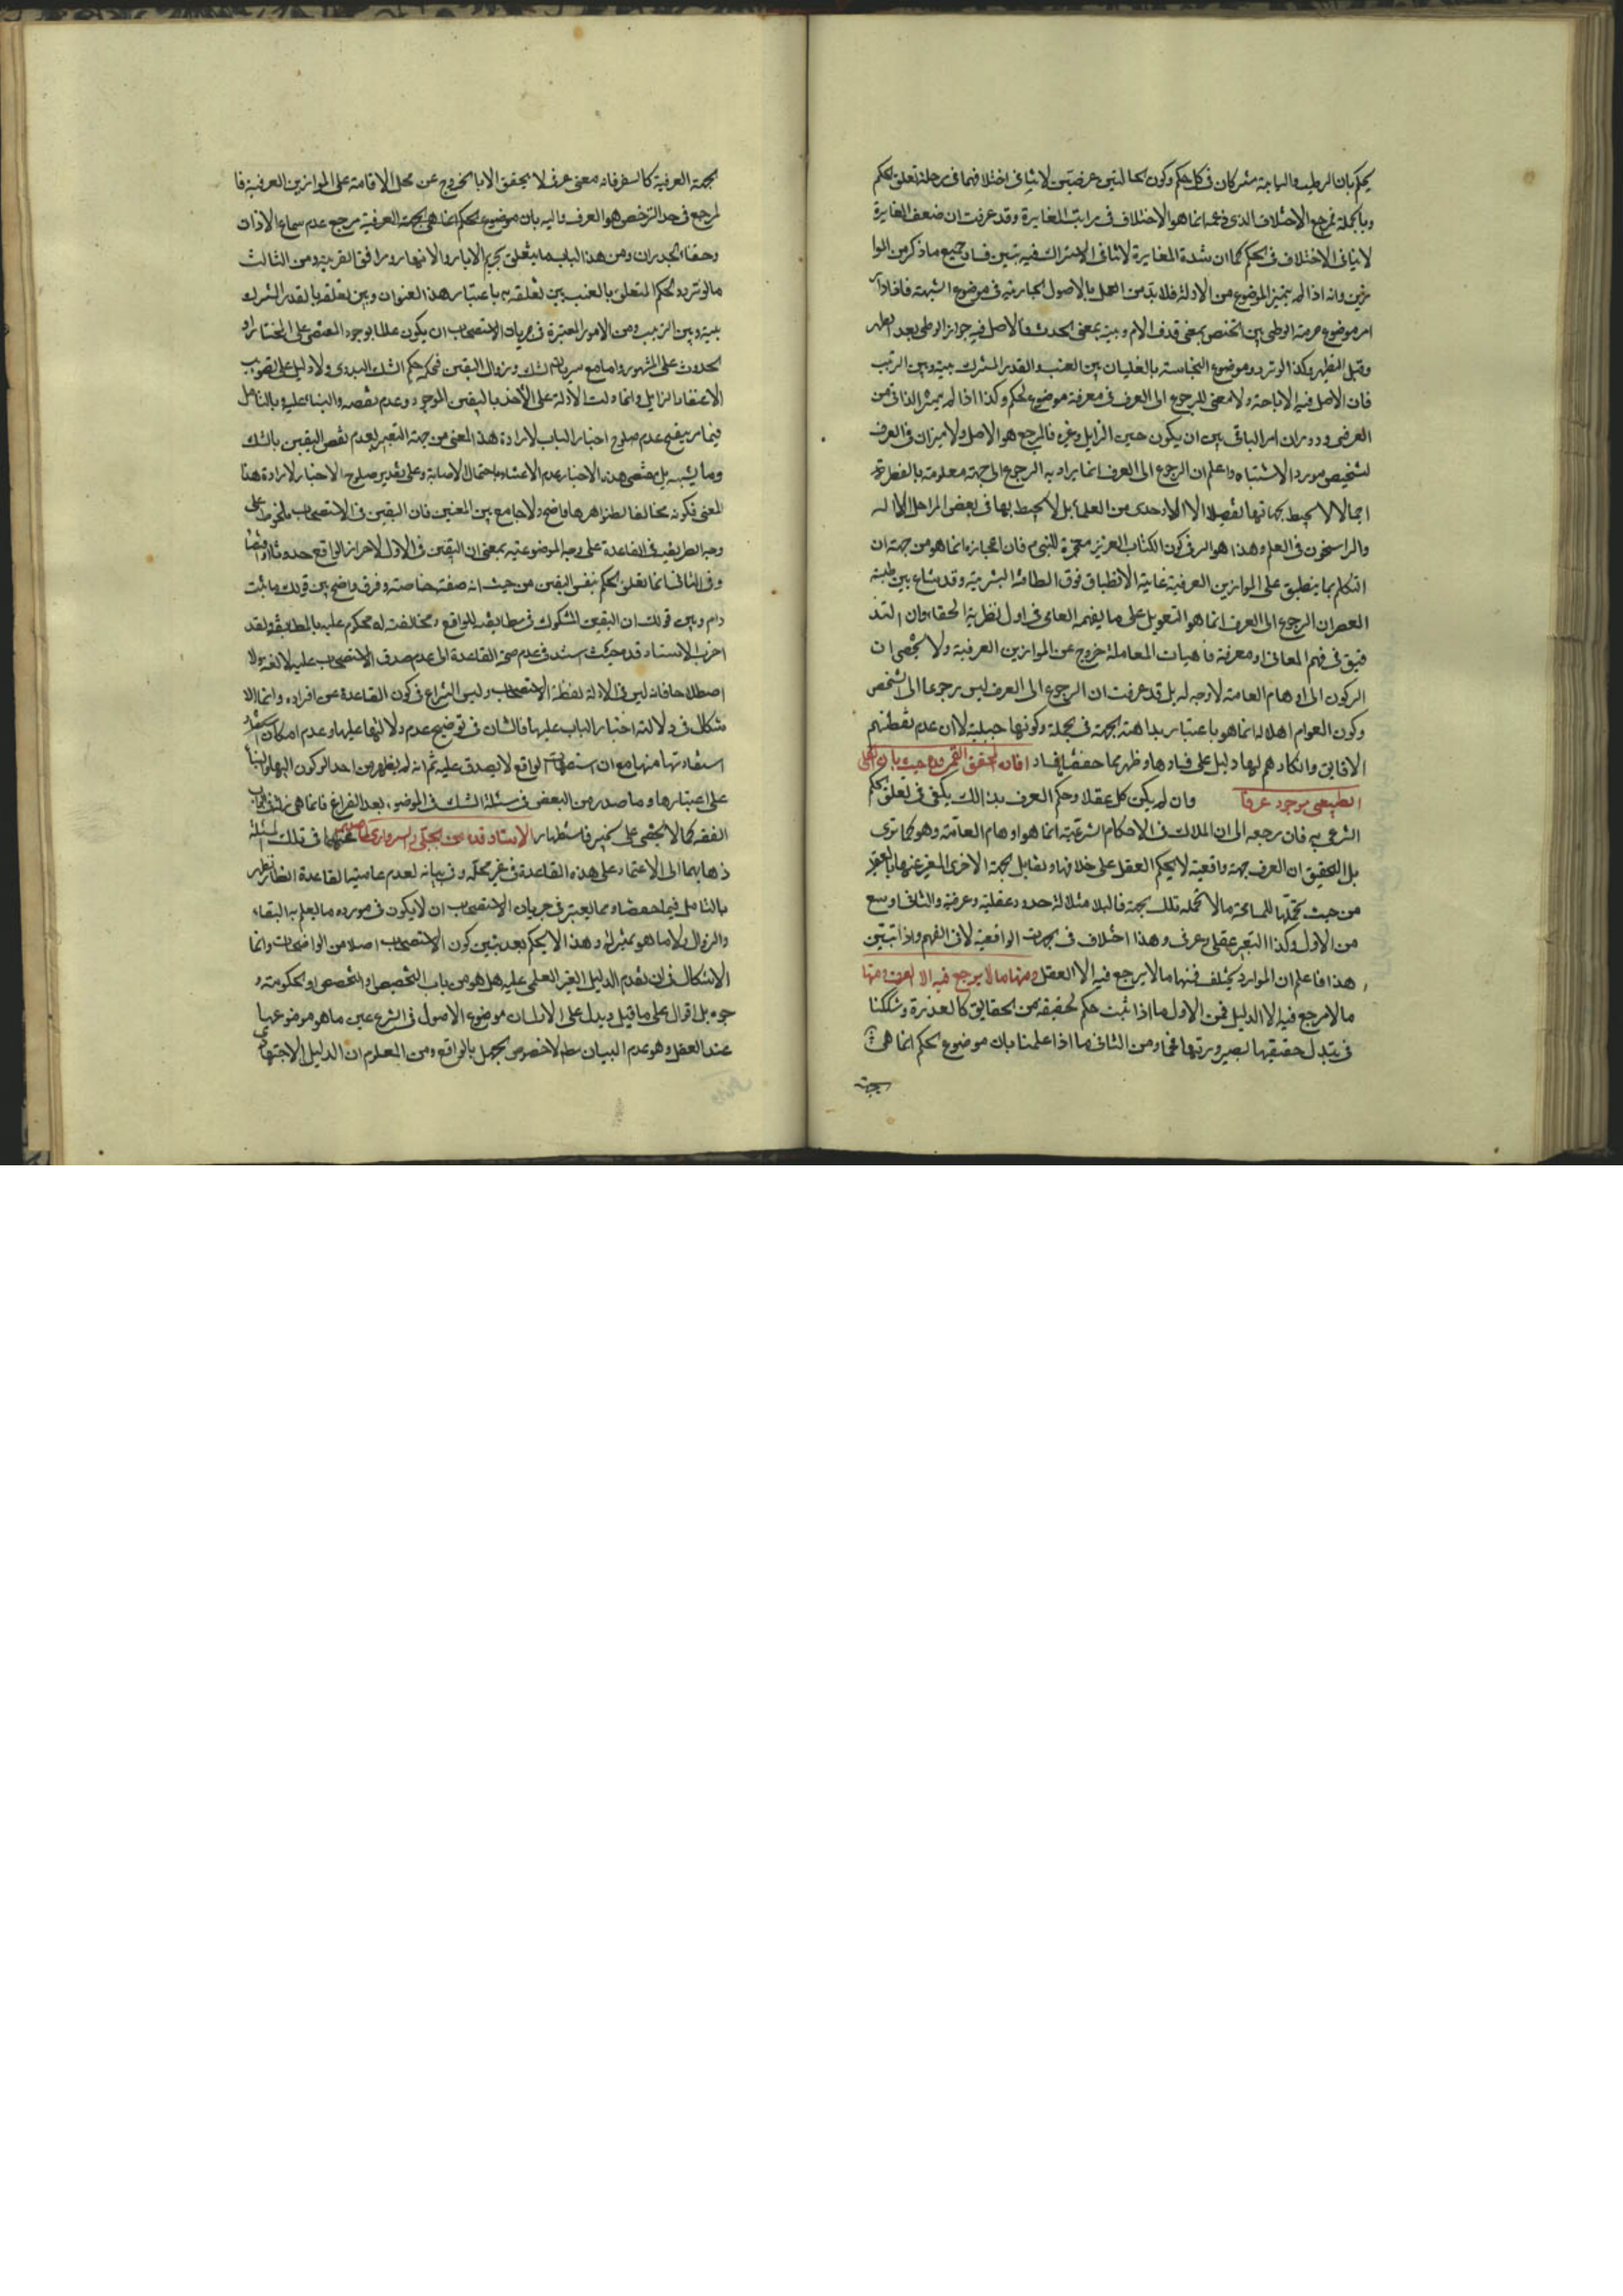 يحكم بان الرطب واليابسة مشتركان في كل حكم وكون الحالتين عرضيتين لا ينافي اختلافهما في مرحلة تعلق الحكم
وبالجملة فمرجع الاختلاف الذي زعمه انما هو الاختلاف في مراتب المغايرة وقد عرفت ان ضعف المغايرة
لا ينافي الاختلاف في الحكم كما ان شدة المغايرة لا تنافي الاشتراك فيه فتبين فساد جميع ما ذكر من الموا
زين وانه اذا لم يتميز الموضوع من الادلة فلا بد من العمل بالاصول الجارية في موضوع الشبهة فاذا دار
امر موضوع حرمة الوطي بين الحيض بمعنى قذف الدم وبينه بمعنى الحدث فالاصل فيه جواز الوطي بعد الطهر
وقبل التطهير وكذا لو تردد موضوع النجاسة بالغليان بين العنب والقدر المشترك بينه وبين الزبيب
فان الاصل فيه الاباحة ولا معنى للرجوع الى العرف في معرفة موضوع الحكم وكذا اذا لم يتميز الذاتي من
العرضي ودوران امر الباقي بين ان يكون حين الزايل وغيره فالمرجع هو الاصل ولا ميزان في العرف
لتشخيص مورد الاشتباه واعلم ان الرجوع الى العرف انما يراد به الرجوع الى جهة معلومة بالفطرة
اجمالا لا يحيط بجهاتها تفصيلا الا الاوحدي من العلماء بل لا يحيط بها في بعض المراحل الا الله
والراسخون في العلم وهذا هو السر في كون الكتاب العزيز معجزة للنبي ص فان اعجازه انما هو من جهة ان
التكلم بما ينطبق على الموازين العرفية غاية الانطباق فوق الطاقة البشرية وقد شاع بين طلبة
العصر ان الرجوع الى العرف انما هو التعويل على ما يفهمه العامي في اول نظره الحقاء وان التد
قيق في فهم المعاني او معرفة ماهيات المعاملة خروج عن الموازين العرفية ولا يخفى ان
الركون الى اوهام العامة لا وجه له بل قد عرفت ان الرجوع الى العرف ليس رجوعا الى الشخص
وكون العوام اهلا له انما هو باعتبار بداهة الجهة في الجملة وكونها جبلية لا ان عدم تفطنهم
الا فايق وانكارهم لها دليل على فسادها وظهر بما حققنا فساد افادة المحقق القمي قده حيث بان الكلي
الطبيعي موجود عرفا وان لم يكن كل عقلا وحكم العرف بذالك يكفي في تعلق الحكم
الشرعي به فان مرجعه الى ان الملاك في الاحكام الشرعية انما هو اوهام العامة وهو كما ترى
بل التحقيق ان العرف جهة واقعية لا يحكم العقل على خلافها وتقابل الجهة الاخرى المعبر عنها بالعقل
من حيث تحملها للمسامحة ما لا تتحمله تلك الجهة فالبلاد مثلا له حدود عقلية وعرفية والثاني اوسع
من الاول وكذا التعبر عقلي وعرفي وهذا اختلاف في الجهات الواقعية لا في الفهم واذا تبين
هذا فاعلم ان الموارد يختلف فمنها ما لا يرجع فيه الا العقل ومنها ما لا يرجع فيه الا العرف ومنها
ما لا مرجع فيه الا الدليل فمن الاول ما اذا ثبت حكم لحقيقة من الحقايق كالعذرة وشككنا
في تبدل حقيقتها بصيرورتها فحما ومن الثاني ما اذا علمنا بان موضوع الحكم انما هي
الجهة
الجهة العرفية كالسفر فانه معنى عرفي لا يتحقق الا بالخروج عن محل الاقامة على الموازين العرفية فا
لمرجع في حد الترخص هو العرف واليه بان موضوع الحكم انما هي الجهة العرفية مرجع عدم سماع الاذان
وخفاء الجدران ومن هذا الباب ما يتعلق بحريم الابار والانهار ومرافق القرية ومن الثالث
ما لو تردد الحكم المتعلق بالعنب بين تعلقه به باعتبار هذا العنوان وبين تعلقه بالقدر المشترك
بينه وبين الزبيب ومن الامور المعتبرة في جريان الاستصحاب ان يكون عالما بوجود المقتضي على المختار او
الحدوث على المشهور واما مع سريان الشك وزوال اليقين فحكمه حكم الشك البدوي ولا دليل على تصويب
الاعتقاد الزايل وانما دلت الادلة على الاخذ باليقين الموجود وعدم نقضه والبناء عليه وبالتامل
فيما مر يتضح عدم صلوح اخبار الباب لارادة هذا المعنى من جهة التعبير بعدم نقض اليقين بالشك
وما يشبهه بل مقتضى هذه الاخبار عدم الاعتناء باحتمال الاصابة وعلى تقدير صلوح الاخبار لارادة هذا
المعنى فكونه مخالفا لظواهرها واضح ولا جامع بين المعنيين فان اليقين في الاستصحاب ملحوظ على
وجه الطريقية وفي القاعدة على وجه الموضوعية بمعنى ان اليقين في الاول لاحراز الواقع حدوثا او مقتضيا
وفي الثاني انما تعلق الحكم بنفس اليقين من حيث انه صفة خاصة وفرق واضح بين قولك ما ثبت
دام وبين قولك ان اليقين المشكوك في مطابقته للواقع ومخالفته له محكوم عليه بالمطابقة ولقد
اغرب الاستاد قده حيث استند في عدم صحة القاعدة الى عدم صدق الاستصحاب عليه لا لغة ولا
اصطلاحا فانه ليس في الادلة لفظة الاستصحاب وليس النزاع في كون القاعدة من افراده وانما الا
شكال في دلالة اخبار الباب عليها فالشان في توضيح عدم دلالتها عليها وعدم امكان
استفادتها منها مع ان استصحاب الواقع لا يصدق عليه ثم انه لم يظهر من احد الركون اليها والبناء
على اعتبارها وما صدر من البعض في مسئلة الشك في الوضوء بعد الفراغ فانما هي
الفقه كما لا يخفى على الخبير فاستظهار الاستاد قده من الحلي والسبزواري في تلك المسئلة
ذهابهما الى الاعتماد على هذه القاعدة في غير محله وفي بيانه لعدم عامية القاعدة انظار تظهر
بالتامل فيما حققناه ومما يعتبر في جريان الاستصحاب ان لا يكون في مورده ما يعلم به البقاء
والزوال ولا ما هو بمنزلته وهذا الحكم بعد تبين كون الاستصحاب اصلا من الواضحات وانما
الاشكال في ان تقدم الدليل الغير العلمي عليه هل هو من باب التخصيص او التخصص او الحكومة و
جوه بل اقوال على ما قيل ويدل على الاول ان موضوع الاصول في الشرع عين ما هو موضوعها
عند العقل وهو عدم البيان مطلقا لا خصوص الجهل بالواقع ومن المعلوم ان الدليل الاجتهادي